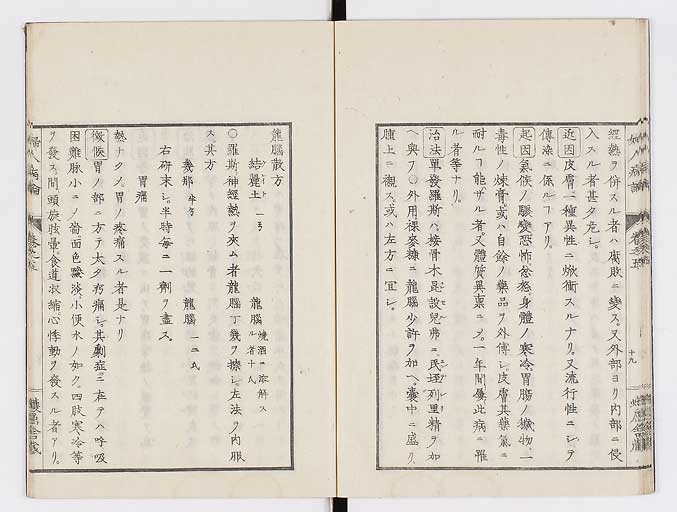 經熱ヲ併スル者ハ腐敗ニ變ス。又外部ヨリ内部ニ侵
入スル者甚タ危シ。
近因皮膚ニ種異性ニ焮衝スルナリ。又流行性ニシテ
傳染ニ係ルコアリ。
起因氣候ノ驟變恐怖忿怒身體ノ寒冷胃腸ノ穢物、一
毒性ノ煉膏或ハ自餘ノ藥品ヲ外傳シ。皮膚其藥氣ニ
耐ルフ能ザル者。又體質異稟ニメ。一年間屢此病ニ罹
ル者等ナリ。
治法單發羅斯ハ。接骨木
列里精ヲ如
ヘ與フ〇外用裸麥糠ニ龍腦少許ヲ加ヘ。嚢中ニ盛リ。
腫上ニ襯ス。或ハ左方ニ宜シ。
十九
龍腦散方
結麗土 龍腦 燒酒ニ溶解スル者十氏
〇羅斯神經熱ヲ夾ム者龍腦丁幾ヲ擦シ。左法ヲ内服
ス其方
幾那 龍腦 一二氏
右研末シ。半時每ニ一劑ヲ盡ス。
胃痛
熱ナクメ。胃ノ疼痛スル者是ナリ
徴候胃ノ部ニ方テ太タ疼痛シ。其劇症ニ在テハ呼吸
困難脉小ニメ嗇面色黯淡、小便水ノ如ク。四肢寒冷等
ヲ發ス。間頭旋眩暈食道收縮、心悸動ヲ發スル者アリ。
婦人病論